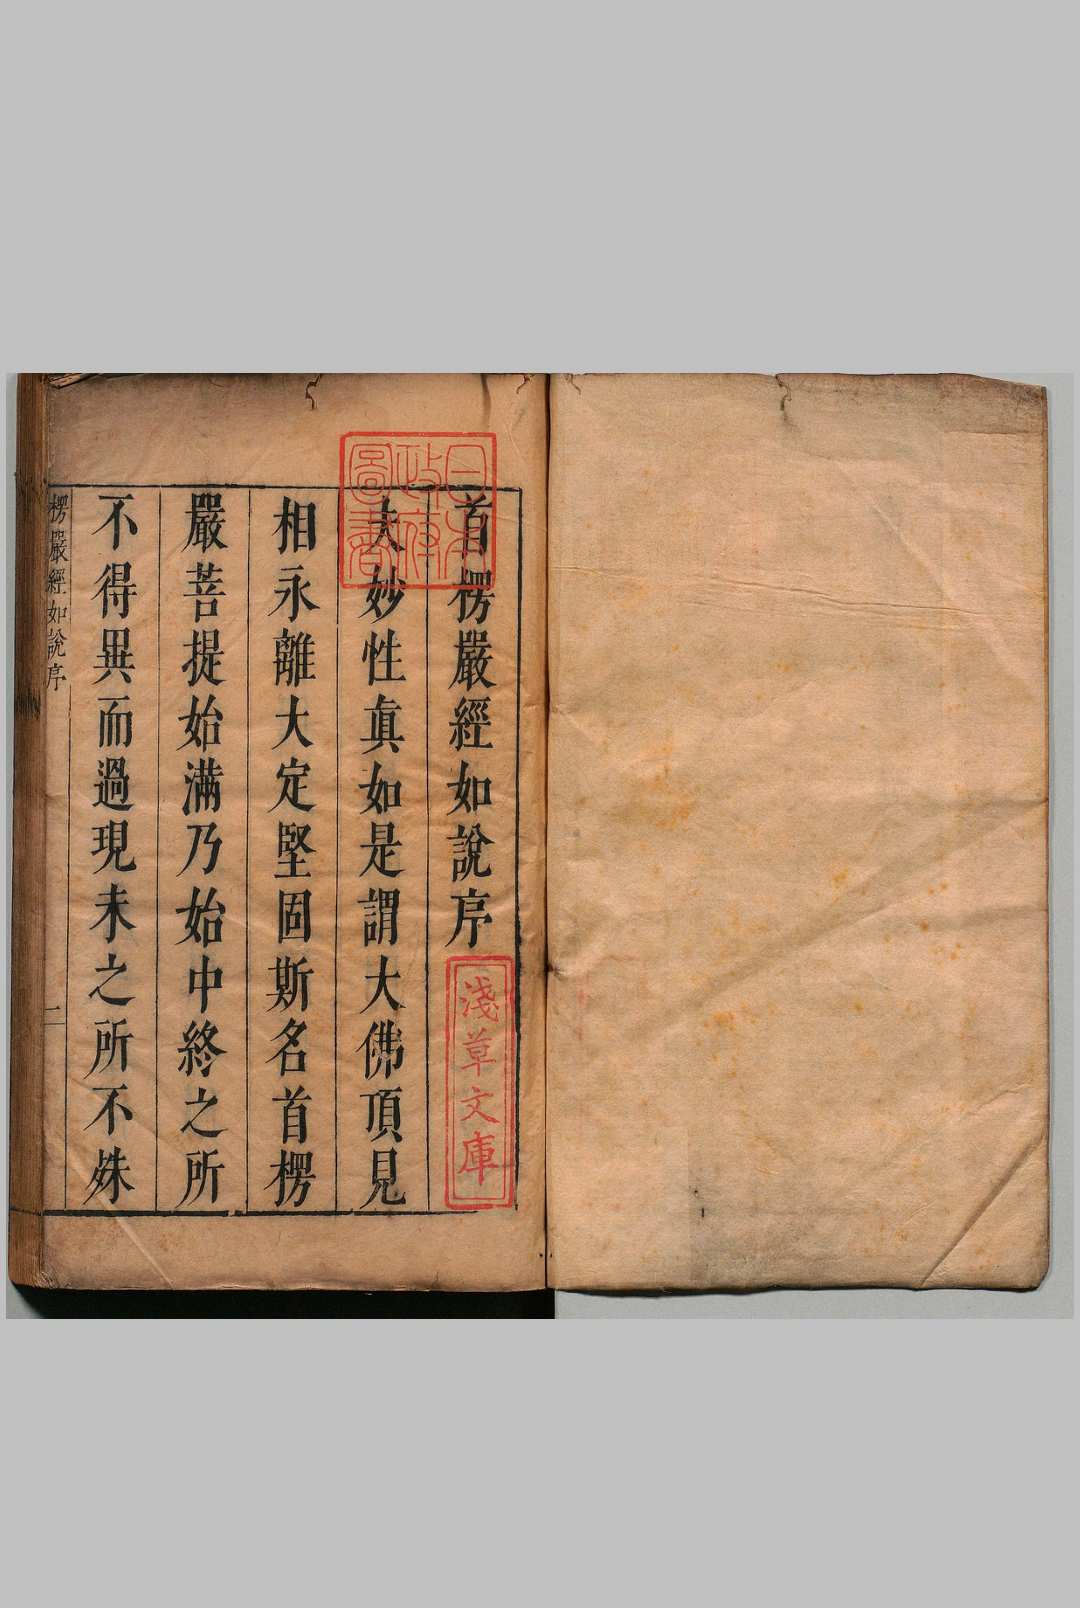 首楞嚴經如說序
夫妙性眞如是謂大佛頂見
相永離大定堅固斯名首楞
嚴菩提始滿乃始中終之所
不得異而過現未之所不姝
楞嚴經如說序
一
日本
政府
圖書
淺草文庫